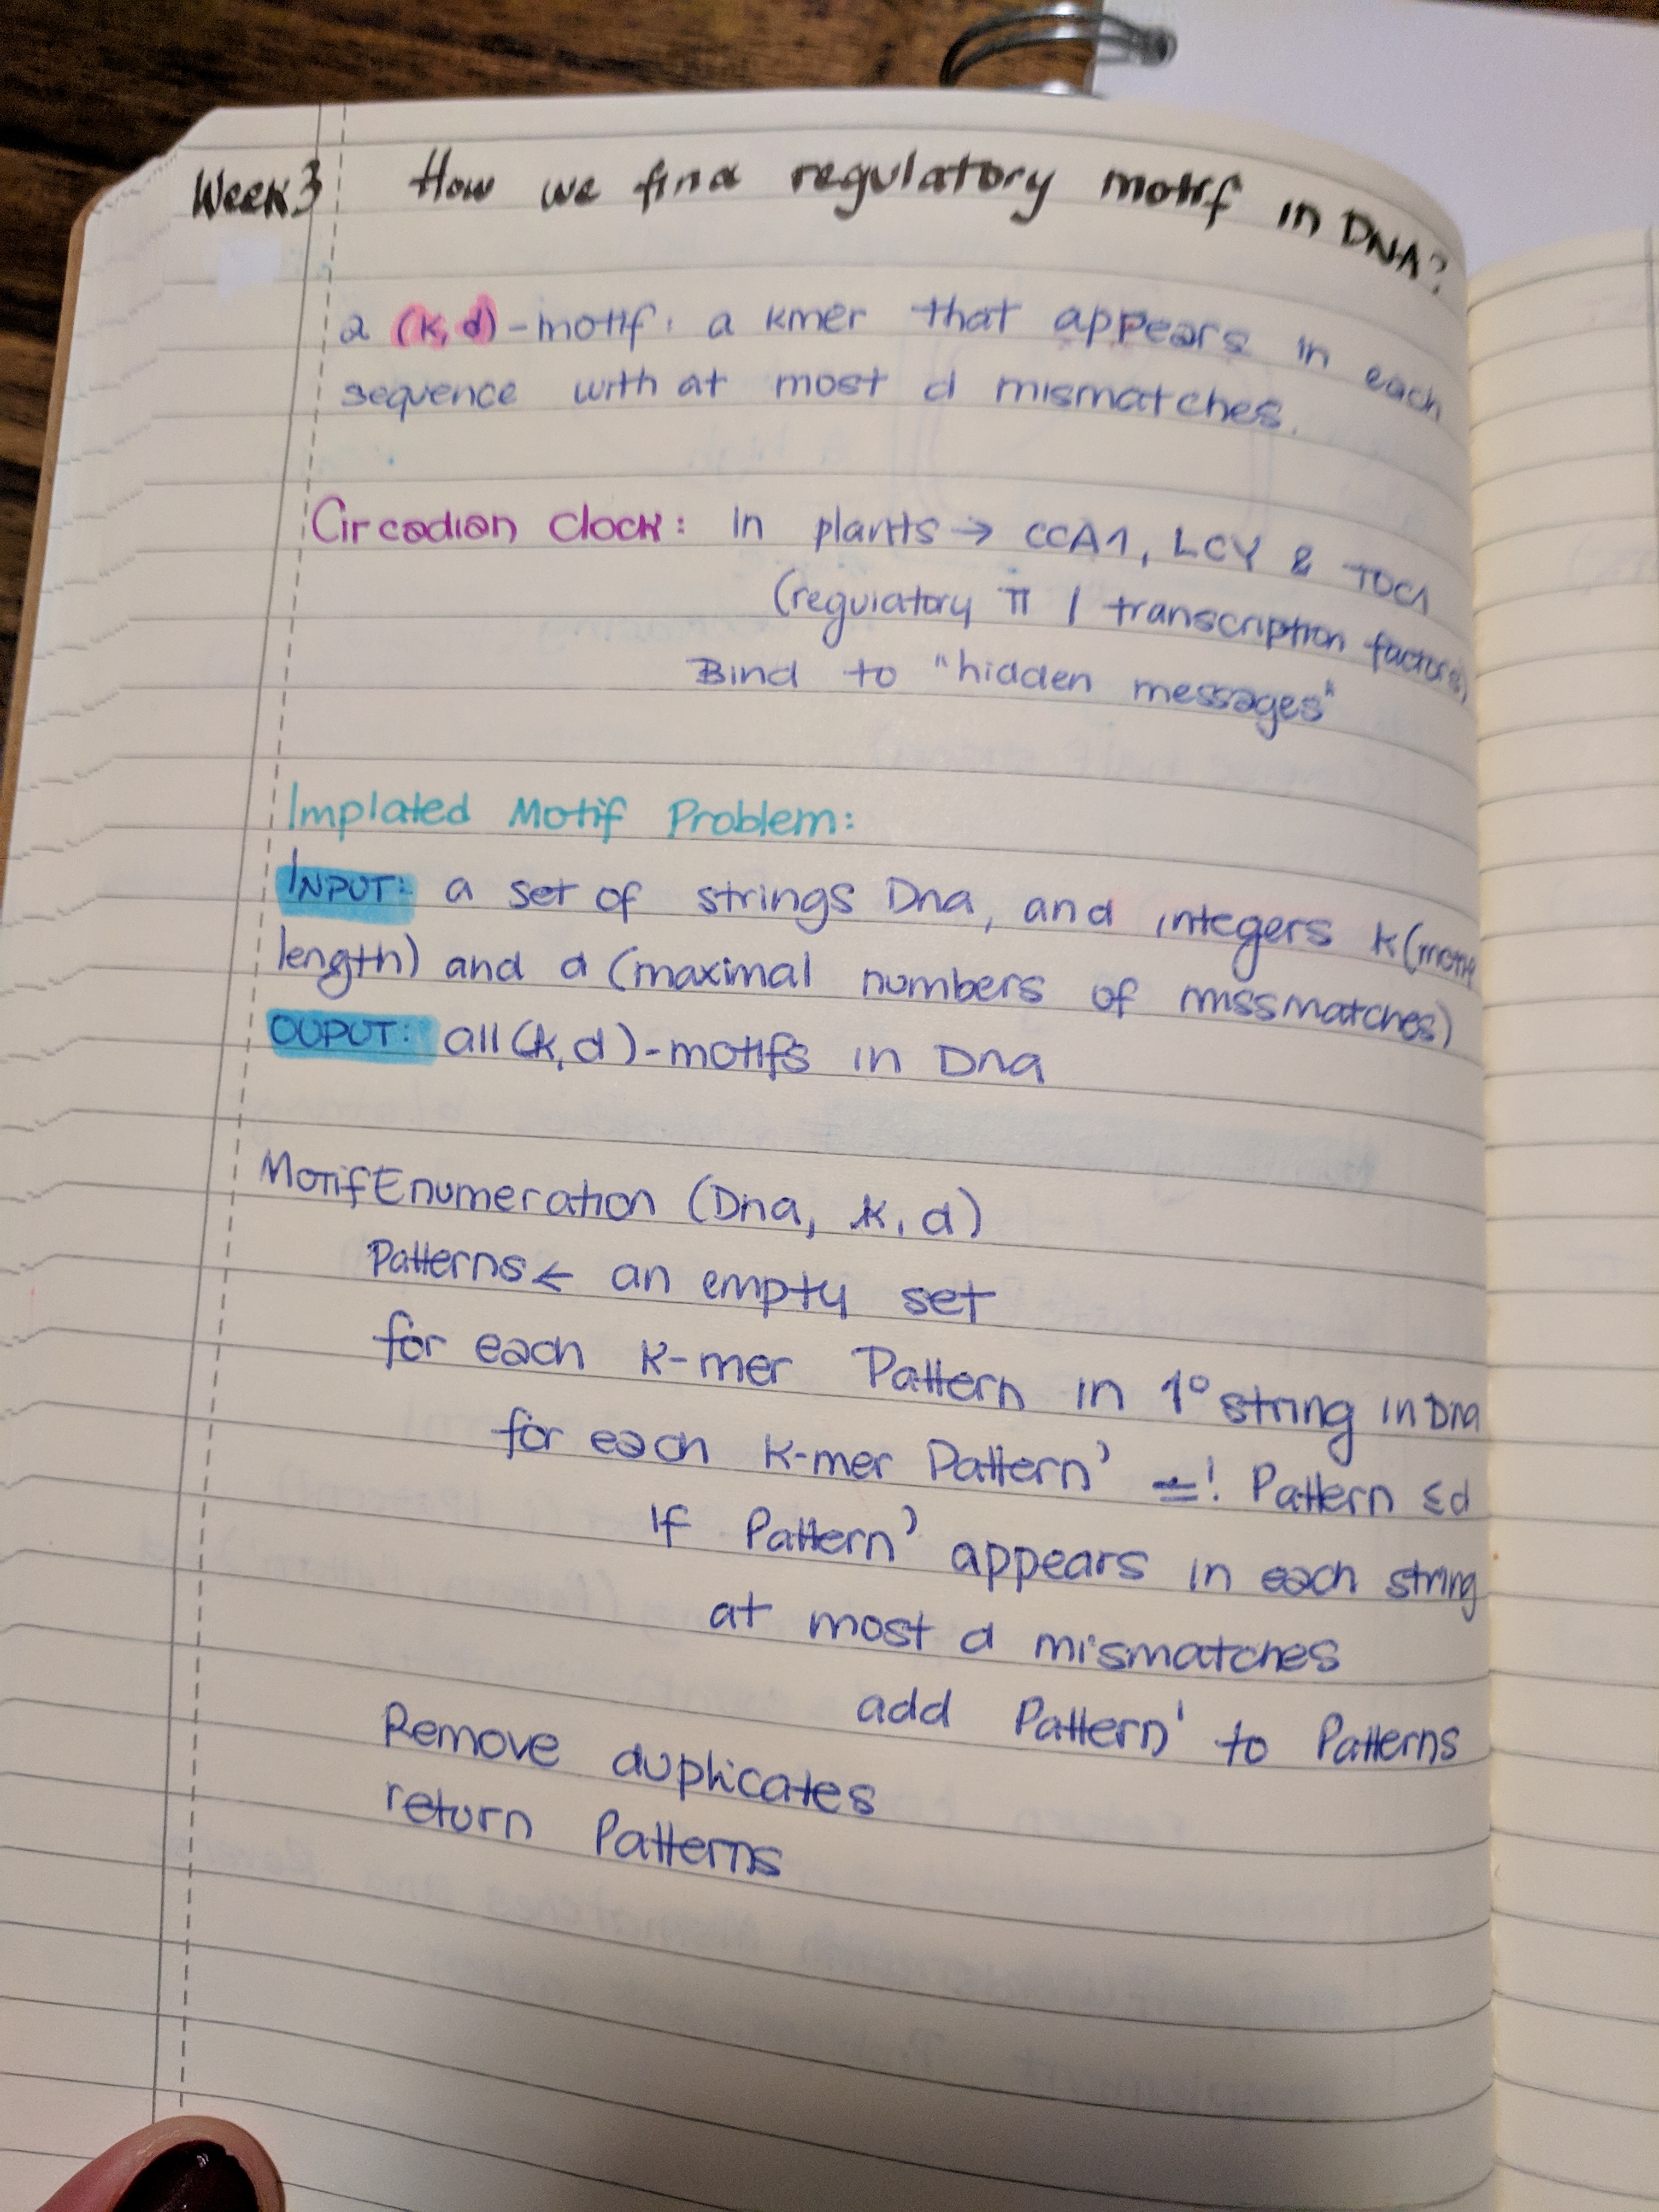 Week3 How we find regulatory motif in DNA?
a (k,d)-motif: a kmer that appears in each
sequence with at most d mismatches.
Circadian clock: In plants → CCA1, LCY & TOC1
(regulatory π / transcription factors)
Bind to "hidden messages"
Implated Motif Problem:
INPUT: a set of strings Dna, and integers k (motif
length) and d (maximal numbers of missmatches)
OUPUT: all (k,d)-motifs in Dna
MotifEnumeration (Dna, k, d)
Patterns ← an empty set
for each k-mer Pattern in 1° string in Dna
for each k-mer Pattern' =! Pattern ≤d
If Pattern' appears in each string
at most d mismatches
add Pattern' to Patterns
Remove duplicates
return Patterns